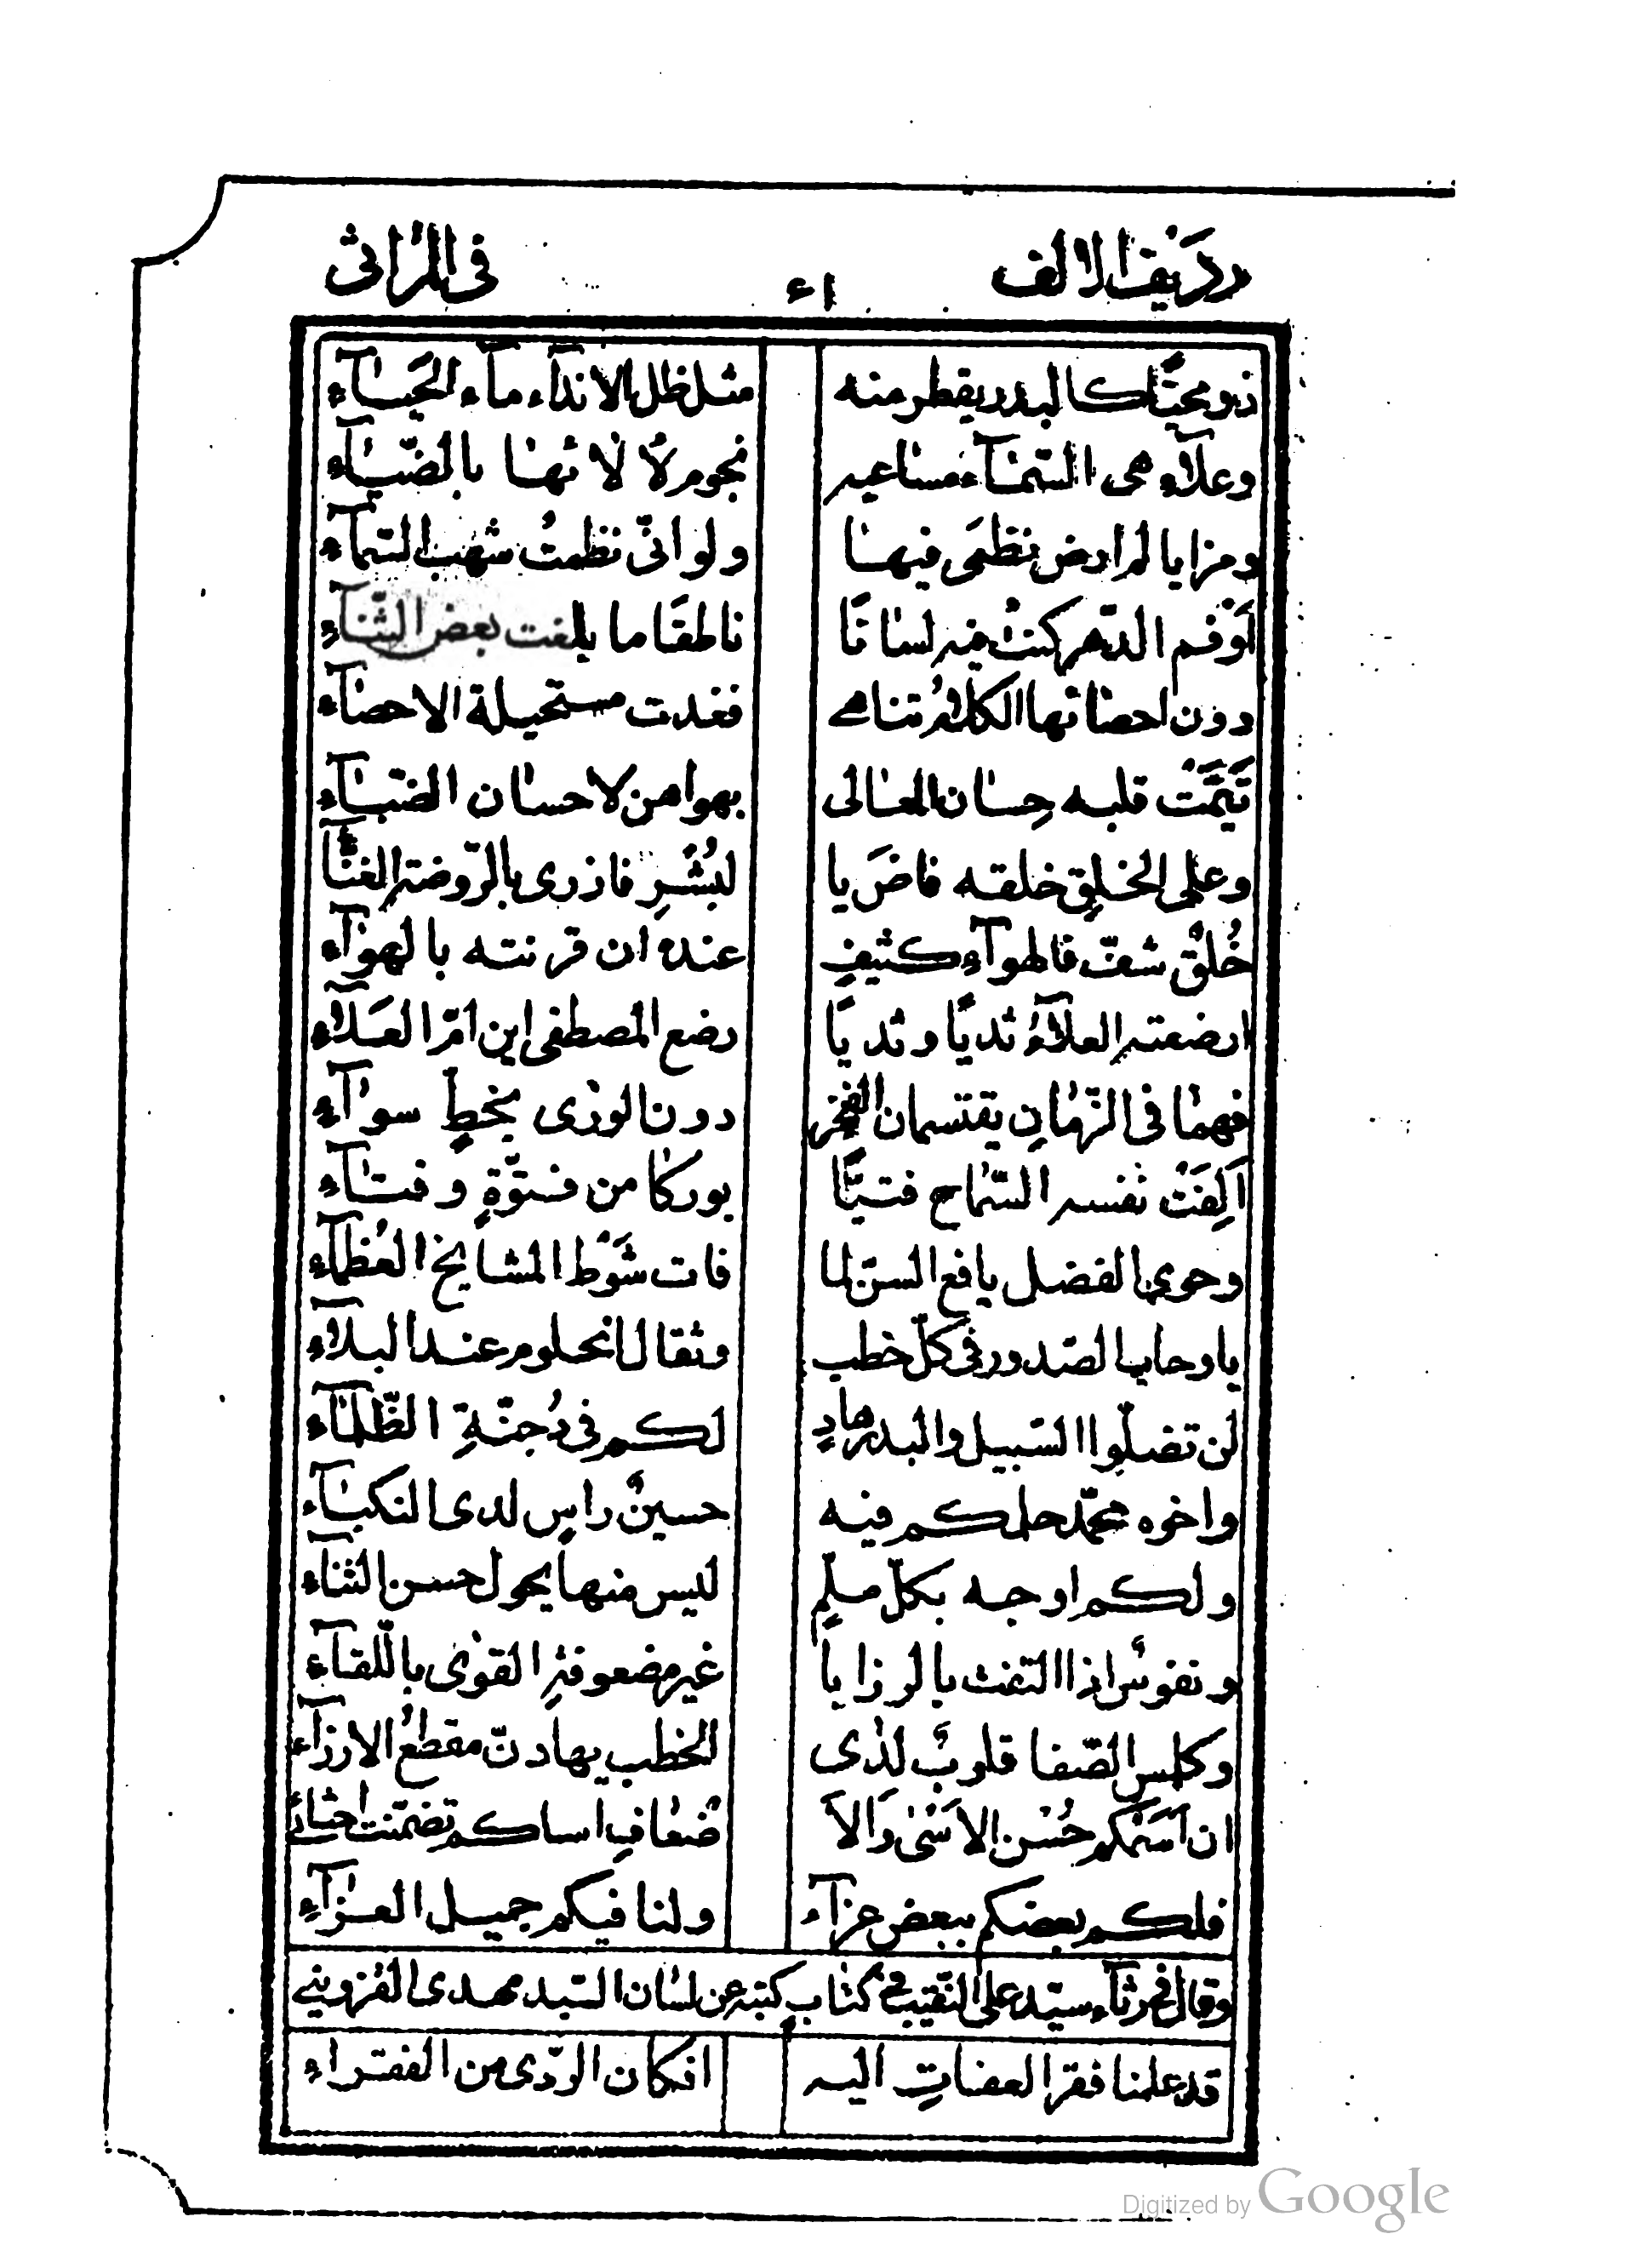 رديف الالف ٤١ فى المراثى
ذو محيًّا كالبدر يقطر منه مثل ظل الانداء ماء الحيآء
وعلآء هى السّمآء مساعيه نجوم لألائها بالضّيآء
ومزايا لم ارض نظمى فيها ولو انّى نظمتُ شهب السّمآء
لَوْ فم الدّهر كنتُ فيه لسانًا ناطقًا ما بلغت بعض الثّنآء
دون احصائها الكلام تناهى فغدت مستحيلة الاحصآء
تَيَّمَتْ قلبه حِسان المعالى بهواهن لا حسان الضبآء
وعلى الخلقِ خلقه فاضَ يا لبُشْرِ فازرى بالرّوضة الغنّآ
خُلُقٌ شفّ فالهوآء كثيفٍ عنده ان قرنته بالهوآء
ارضعته العلآءُ ثديًا وثديًا رضع المصطفى ابن امّ العلآء
فهما فى الزّمانِ يقتسمان الفخر دون الورى بخطٍ سوآءِ
اَلِفَتْ نفسه السّماح فتيًّا بوركا من فتوّةٍ وفتآء
وحوى الفضل يافع السنّ لما فات شَوْط المشايخ العُظمآء
يا رحايب الصّدور فى كلّ خطب وثقال الحلوم عند البلآء
لن تضلّوا السّبيل والبدر هادٍ لكم فى دُجنّةِ الظّلمآء
واخوه محمّد حلمكم فيه حسينٌ راسٍ لدى النكبآء
ولكم اوجه بكلّ ملمٍ ليس منها يحول حسن الثنآء
ونفوسٌ اذا التقت بالرزايا غير مضعوفة القوى باللّقآء
وكلمس الصّفا قلوبٌ لدى الخطب بها دنّ مقطعُ الارزآء
ان اسَئكم حُسْن الاسَىٰ وَالا ضعاف اساكم تضمّنت احشائى
فلكم بعضكم ببعض عزآء ولنا فيكم جميل العزآءِ
وقال فى رثآء سيّد على النّقيب فى كتاب كتبه عن لسان السّيد مهدى القزوينى
قد علمنا فقر العفات اليه افكان الرّدى من الفقراء
Digitized by Google